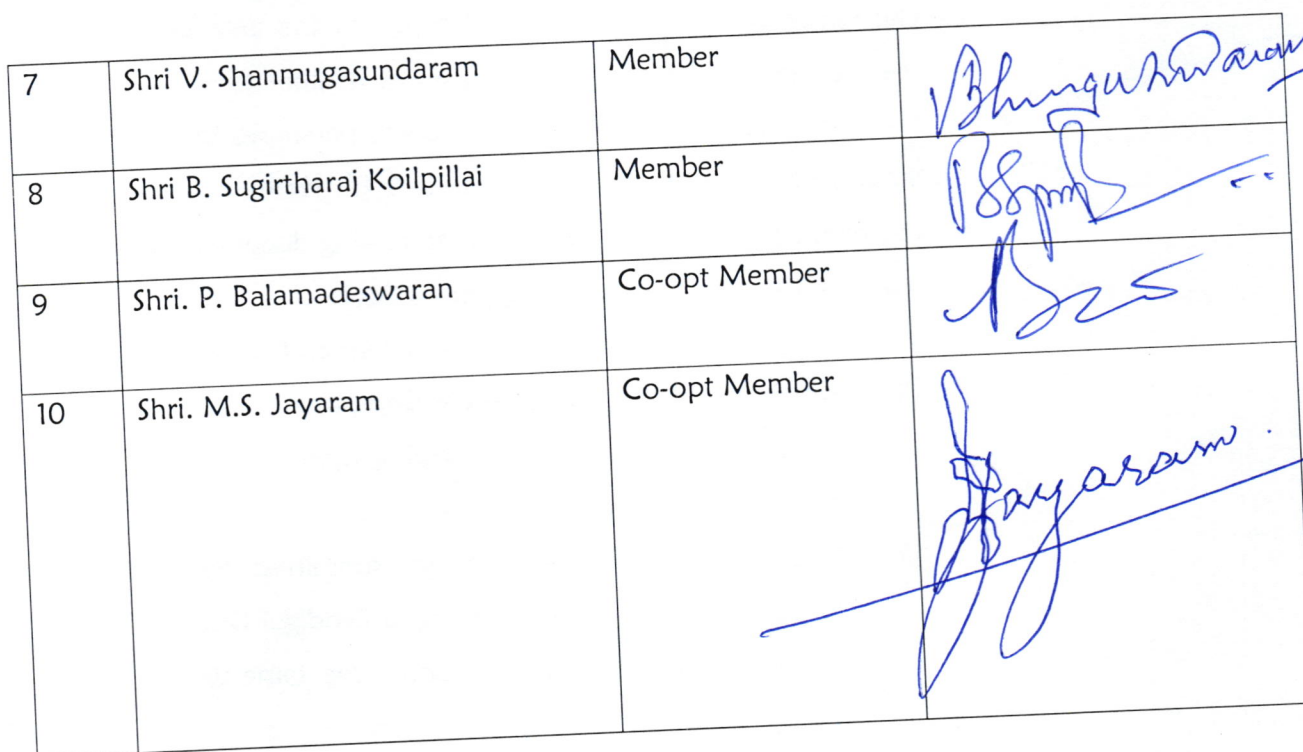 7 Shri V. Shanmugasundaram Member
8 Shri B. Sugirtharaj Koilpillai Member
9 Shri. P. Balamadeswaran Co-opt Member
10 Shri. M.S. Jayaram Co-opt Member Jayaram